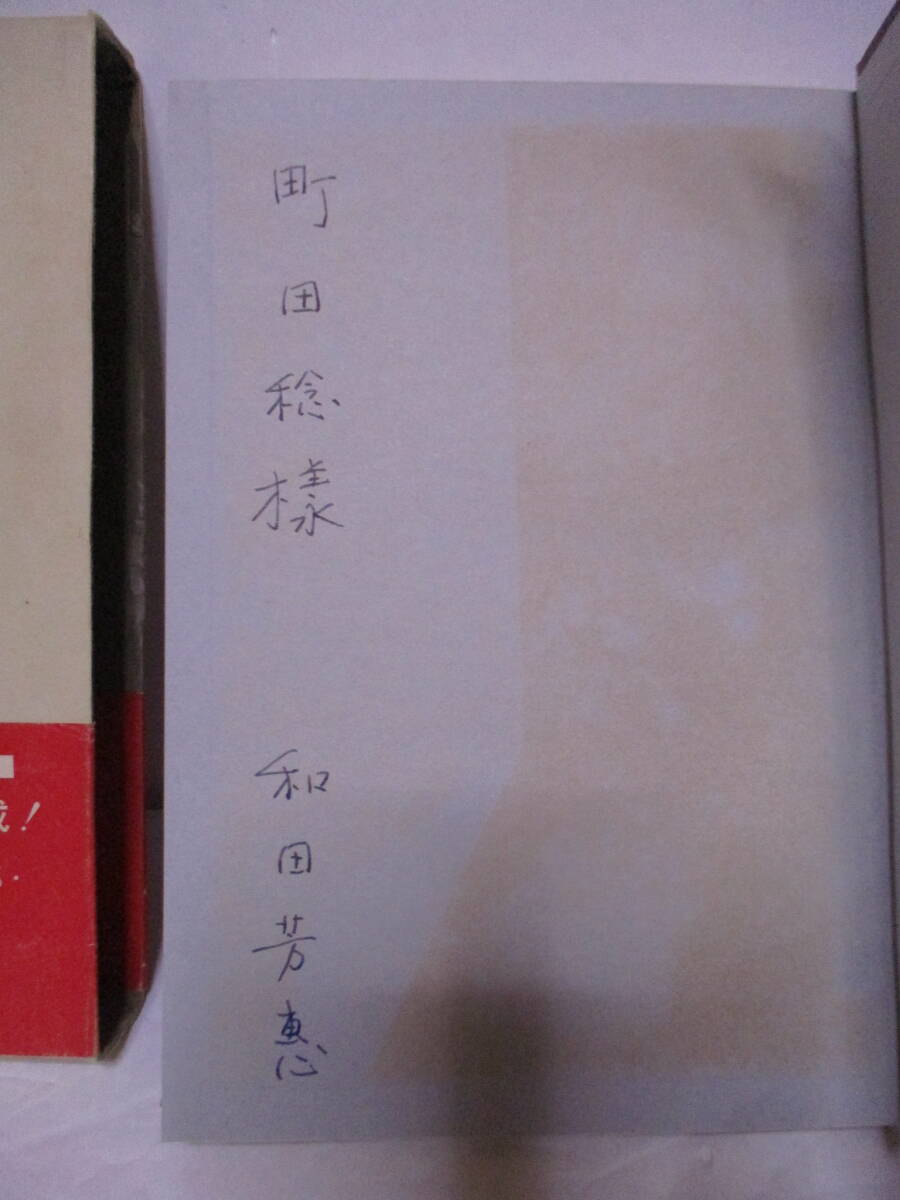 町田稔様
和田芳恵
！